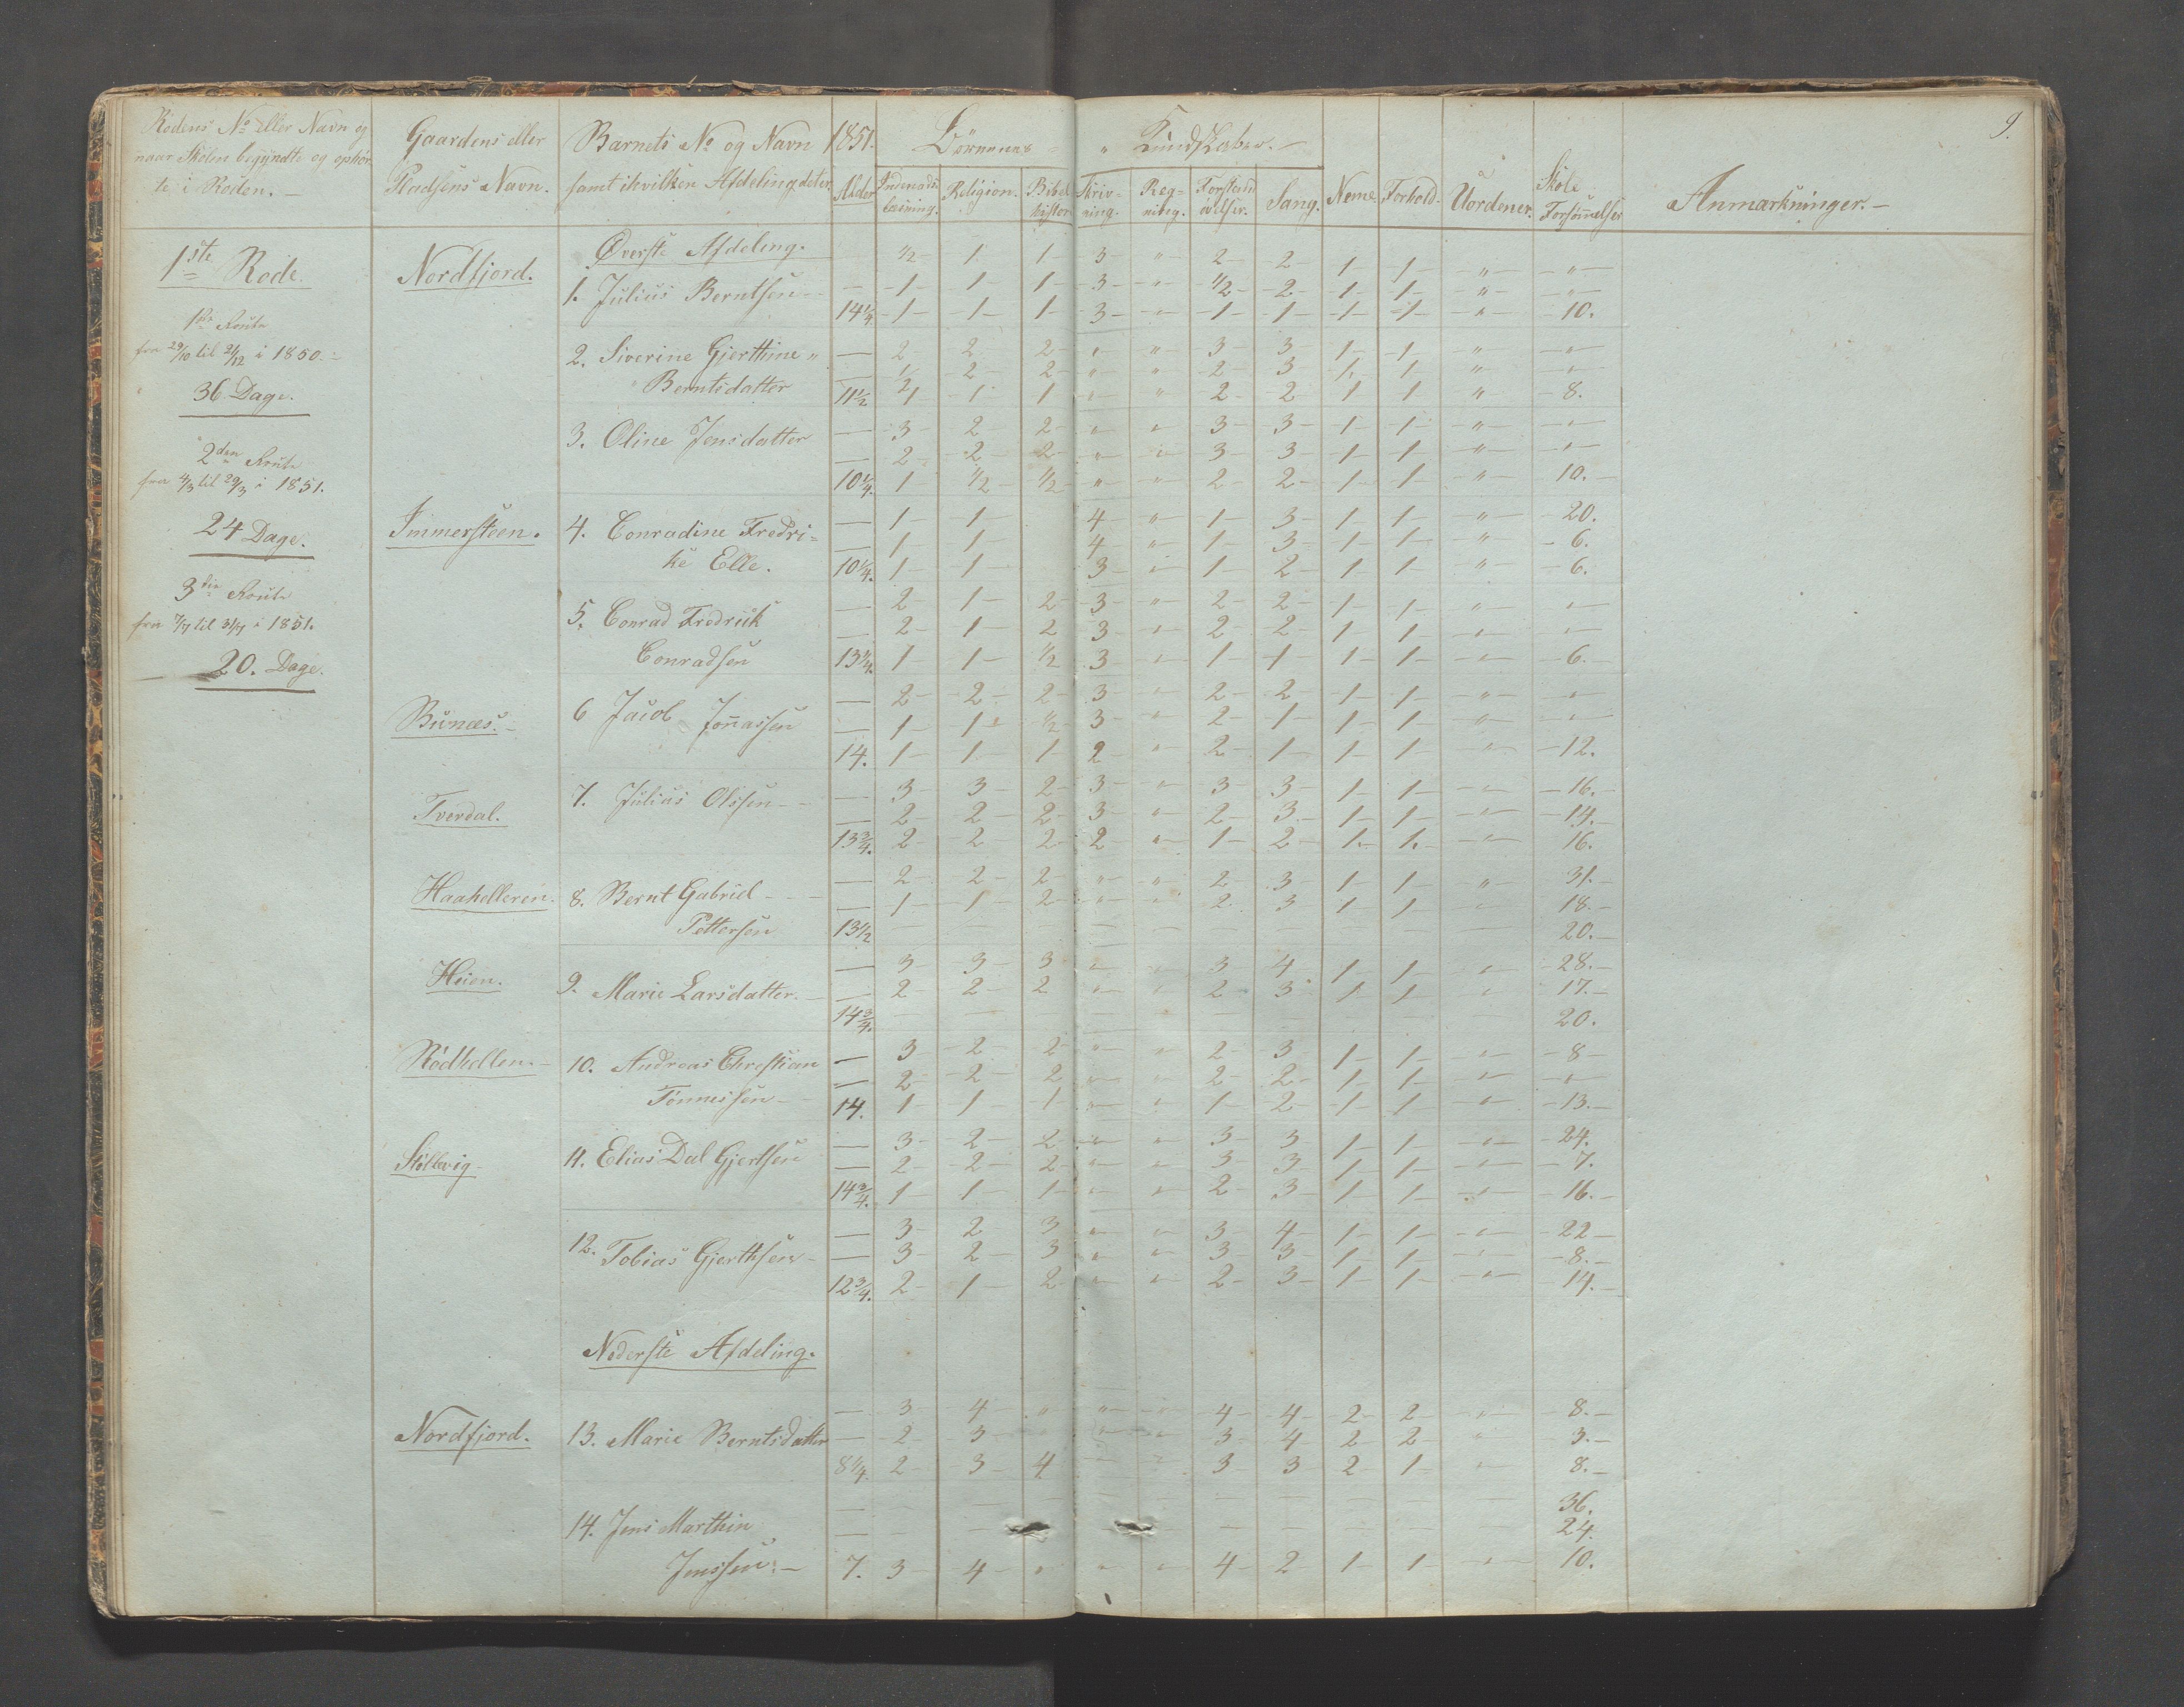 9.
Rodens No eller Navn og naar Skolen begyndte og ophørte i Roden. —
Gaardens eller Pladsens Navn.
Barnets No og Navn samt i hvilken Afdeling det er.
1851. Alder
Børnenes „ Kundskaber. —
Indenadslæsning. Religion. Bibelhistorie Skrivning. Regning. Forstandsøvelser. Sang. Neme. Forhold. Uordener. Skole Forsømmelser
Anmærkninger. —
1ste Rode. Nordfjord. Øverste Afdeling. ½ 1 1 3 „ 2 2 1 1 „ „
1. Julius Berntsen — 1 1 1 3 „ ½ 2 1 1 „ „
14¼ 1 1 1 3 „ 1 1 1 1 „ 10.
1ste Route
fra 29/10 til 21/12 i 1850.
36 Dage.
2. Siverine Gjerthine „ — 2 2 2 „ „ 3 3 1 1 „ „
Berntsdatter — ½ 2 2 „ „ 2 3 1 1 „ „
11½ 1 1 1 „ „ 2 2 1 1 „ 8.
3. Oline Jensdatter — 3 2 2 „ „ 3 3 1 1 „ „
— 2 2 2 „ „ 3 3 1 1 „ „
10¼ 1 ½ ½ „ „ 2 2 1 1 „ 10.
2den Route
fra 4/3 til 29/3 i 1851.
24 Dage.
Immersteen. 4. Conradine Fredri= — 1 1 4 „ 1 3 1 1 „ 20.
ke Elle. — 1 1 4 „ 1 3 1 1 „ 6.
10¼. 1 1 3 „ 1 2 1 1 „ 6.
3die Route
fra 7/7 til 31/7 i 1851.
20. Dage.
5. Conrad Fredrik — 2 1 2 3 „ 2 2 1 1 „ „
Conradsen — 2 1 2 3 „ 2 2 1 1 „ „
13¼. 1 1 ½ 3 „ 1 1 1 1 „ 6.
Bunæs. 6 Jacob Jonassen — 2 2 2 3 „ 2 2 1 1 „ „
— 1 1 ½ 3 „ 2 1 1 1 „ „
14. 1 1 1 2 „ 2 1 1 1 „ 12.
Tverdal. 7. Julius Olssen — 3 3 2 3 „ 3 3 1 1 „ 16.
— 2 2 2 3 „ 2 3 1 1 „ 14.
13¾. 2 2 2 2 „ 1 2 1. 1. „ 16.
Haahelleren. 8. Bernt Gabriel — 2 2 2 „ „ 2 3 1 1 „ 31.
Pettersen — 1 1 2 „ „ 2 3 1 1 „ 18.
13½ — — — — — — — — — — 20.
Heien. 9. Marie Larsdatter. — 3 3 3 „ „ 3 4 1 1 „ 28.
— 2 2 2 „ „ 2 3 1 1 „ 17.
14¾. — — — — — — — — — — 20.
Rødhellen. 10. Andreas Christian — 3 2 2 „ „ 2 3 1 1 „ 8
Tønnessen — 2 2 2 „ „ 2 2 1 1 „ „
14. 1 1 1 „ „ 1 2 1 1 „ 13.
Stølevig 11. Elias Dal Gjertsen — 3 2 2 „ „ 3 3 1 1 „ 24.
— 2 2 2 „ „ 3 3 1 1 „ 7.
14¾. 1 1 1 „ „ 2 3 1 1 „ 16.
12. Tobias Gjerthsen — 3 2 3 „ „ 3 4 1 1 „ 22
— 3 2 3 „ „ 3 3 1 1 „ 8.
12¾. 2 1 2 „ „ 2 3 1 1 „ 14.
Nederste Afdeling.
Nordfjord. 13. Marie Berntsdatter — 3 4 „ „ „ 4 4 2 2 „ 8.
— 2 3 „ „ 3 4 2 2 „ 3.
8¼. 2 3 4 „ „ 3 3 2 1 „ 8.
14. Jens Marthin — — — — — — — — — — — 36.
Jenssen. — — — — — — — — — — — 24.
7. 3 4 „ „ „ 4 2 1 1 „ 10.